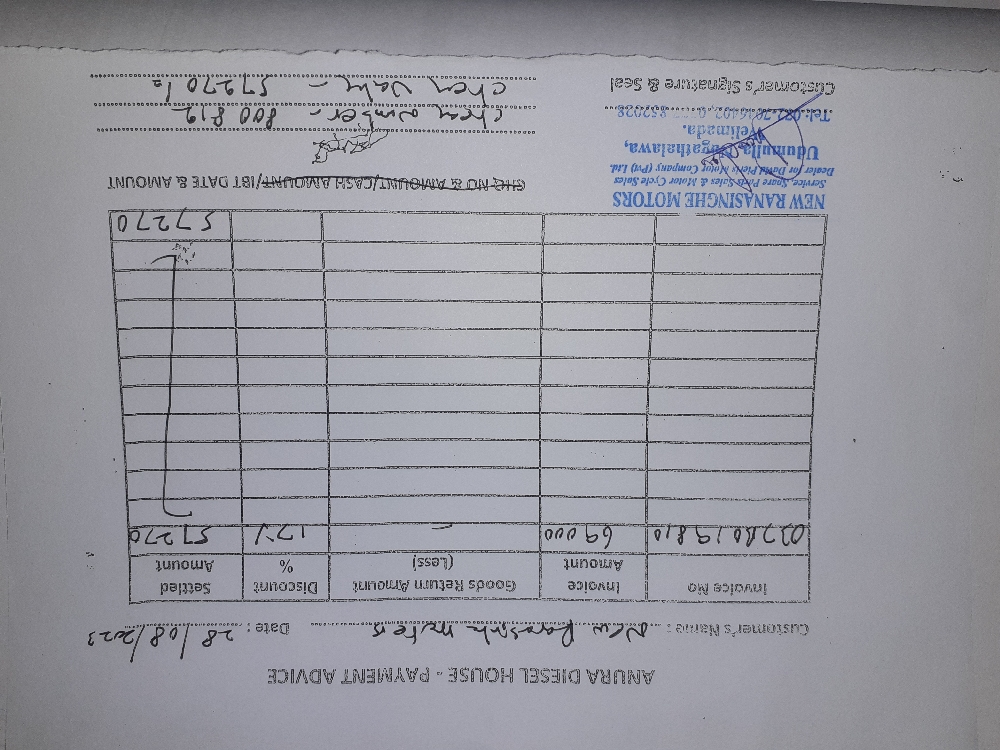 ANURA DIESEL HOUSE - PAYMENT ADVICE
Customer's Name : New Ranasinh moters Date : 28/08/2023
Invoice No Invoice Amount Goods Return Amount (Less) Discount % Settled Amount
69000 - 17% 57270
57270
CHQ NO & AMOUNT/CASH AMOUNT/IBT DATE & AMOUNT
NEW RANASINGHE MOTORS
Service, Spare Parts Sales & Motor Cycle Sales
Dealer for David Pieris Motor Company (Pvt) Ltd.
Udumulla, Bagathalawa,
Welimada.
Tel:
Customer's Signature & Seal
number - 800812
57270/=